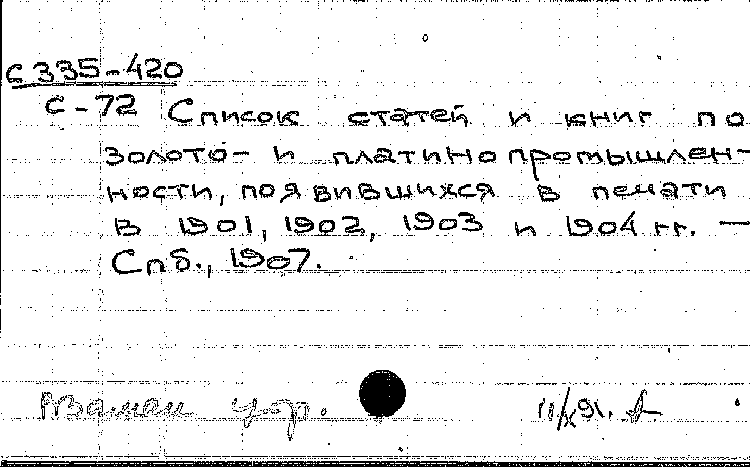 С 335-420
С-72 Список статей и книг по
золото- и платинопромышлен-
ности, появившихся в печати
в 1901, 1902, 1903 и 1904 гг. —
Спб., 1907.